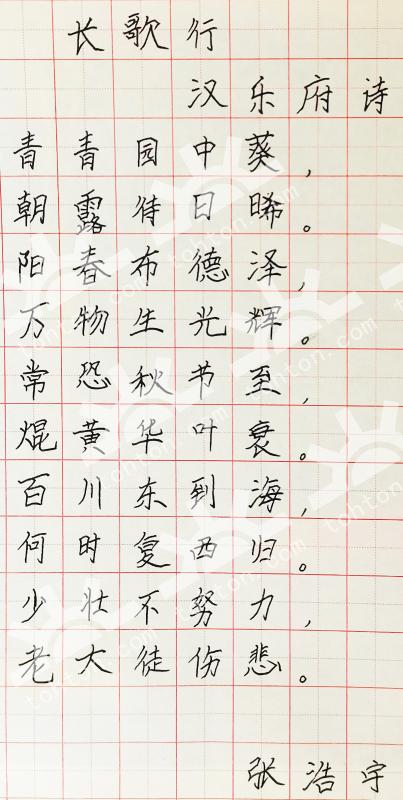 长歌行
汉乐府诗
青青园中葵，
朝露待日晞。
阳春布德泽，
万物生光辉。
常恐秋节至，
焜黄华叶衰。
百川东到海，
何时复西归。
少壮不努力，
老大徒伤悲。
张浩宇
tohton.com
tohton.com
tohton.com
tohton.com